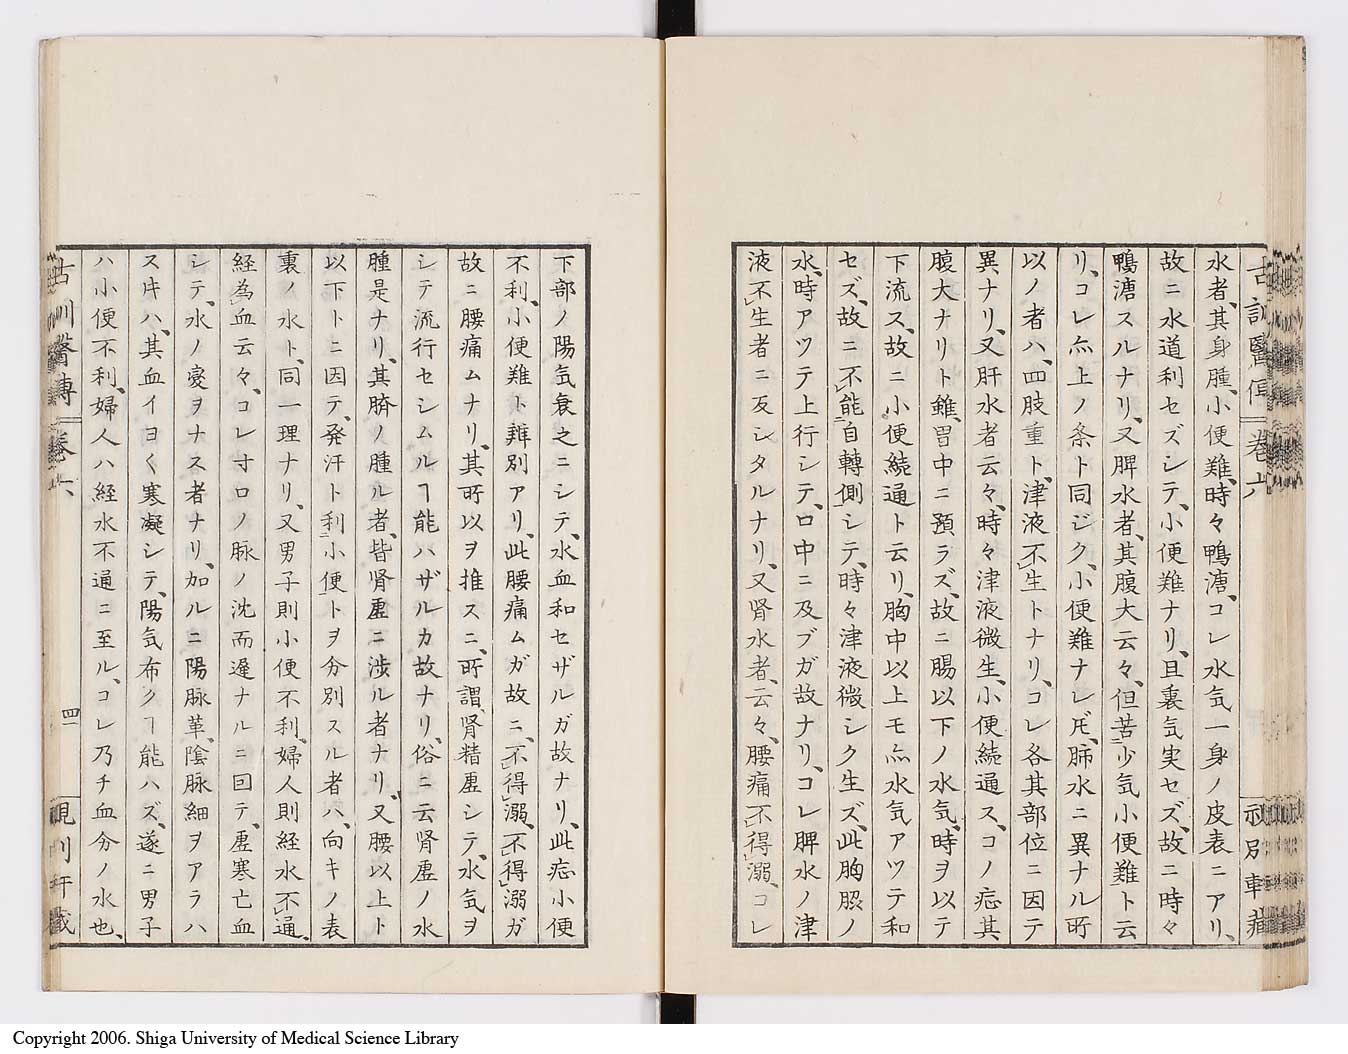 水者、其身腫、小便難、時々鴨溏、コレ水气一身ノ皮表ニアリ、
故ニ水道利セズシテ、小便難ナリ、且裏気実セズ、故ニ時々
鴨溏スルナリ、又脾水者、其腹大云々、但苦少気小便難ト云
リ、コレ亦上ノ条ト同ジク、小便難ナレ𪜈、肺水ニ異ナル所
以ノ者ハ、四肢重ト、津液不生トナリ、コレ各其部位ニ因テ
異ナリ、又肝水者云々、時々津液微生、小便続通ス、コノ症其
腹大ナリト雖、胃中ニ預ラズ、故ニ腸以下ノ水気、時ヲ以テ
下流ス、故ニ小便続通ト云リ、胸中以上モ亦水気アツテ和
セズ、故ニ不能自轉側シテ、時々津液微シク生ズ、此胸脇ノ
水、時アツテ上行シテ、口中ニ及ブガ故ナリ、コレ脾水ノ津
液不生者ニ反シタルナリ、又腎水者、云々、腰痛不得溺、コレ
下部ノ陽気衰之ニシテ、水血和セザルガ故ナリ、此症小便
不利、小便難ト辨別アリ、此腰痛ムガ故ニ、不得溺、不得溺ガ
故ニ腰痛ムナリ、其所以ヲ推スニ、所謂腎精虚シテ、水気ヲ
シテ流行セシムルヿ能ハザルカ故ナリ、俗ニ云腎虚ノ水
腫是ナリ、其臍ノ腫ル者、皆腎虚ニ渉ル者ナリ、又腰以上ト
以下トニ因テ、発汗ト利小便トヲ分別スル者ハ、向キノ表
裏ノ水ト、同一理ナリ、又男子則小便不利、婦人則経水不通、
経為血云々、コレ寸口ノ脉ノ沈而遅ナルニ因テ、虚寒亡血
シテ、水ノ変ヲナス者ナリ、加ルニ陽脉革、陰脉細ヲアラハ
スキハ、其血イヨく寒凝シテ、陽気布クヿ能ハズ、遂ニ男子
ハ小便不利、婦人ハ経水不通ニ至ル、コレ乃チ血分ノ水也、
古訓醫傳 巻六
四
Copyright 2006. Shiga University of Medical Science Library